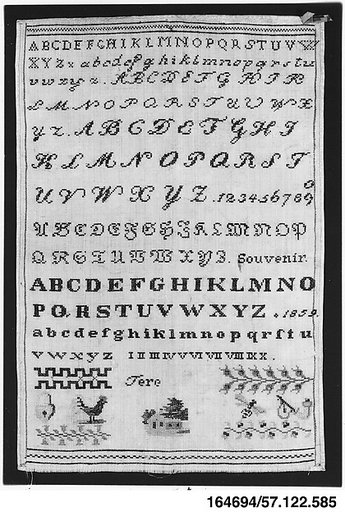 ABCDEFGHIKLMNOPQRSTUVW
XYZ abcdefghiklmnopqrstu
vwxyz. ABCDEFGHIK
LMNOPQRSTUVWX
YZ. ABCDEFGHI
KLMNOPQRST
UVWXYZ. 1234567890
ABCDEFGHIKLMNOP
QRSTUVWXYZ. Souvenir.
ABCDEFGHIKLMNO
PQRSTUVWXYZ. 1859.
abcdefghiklmnopqrſtu
vwxyz I II III IV V VI VII VIII IX X.
Tere
164694/57.122.585